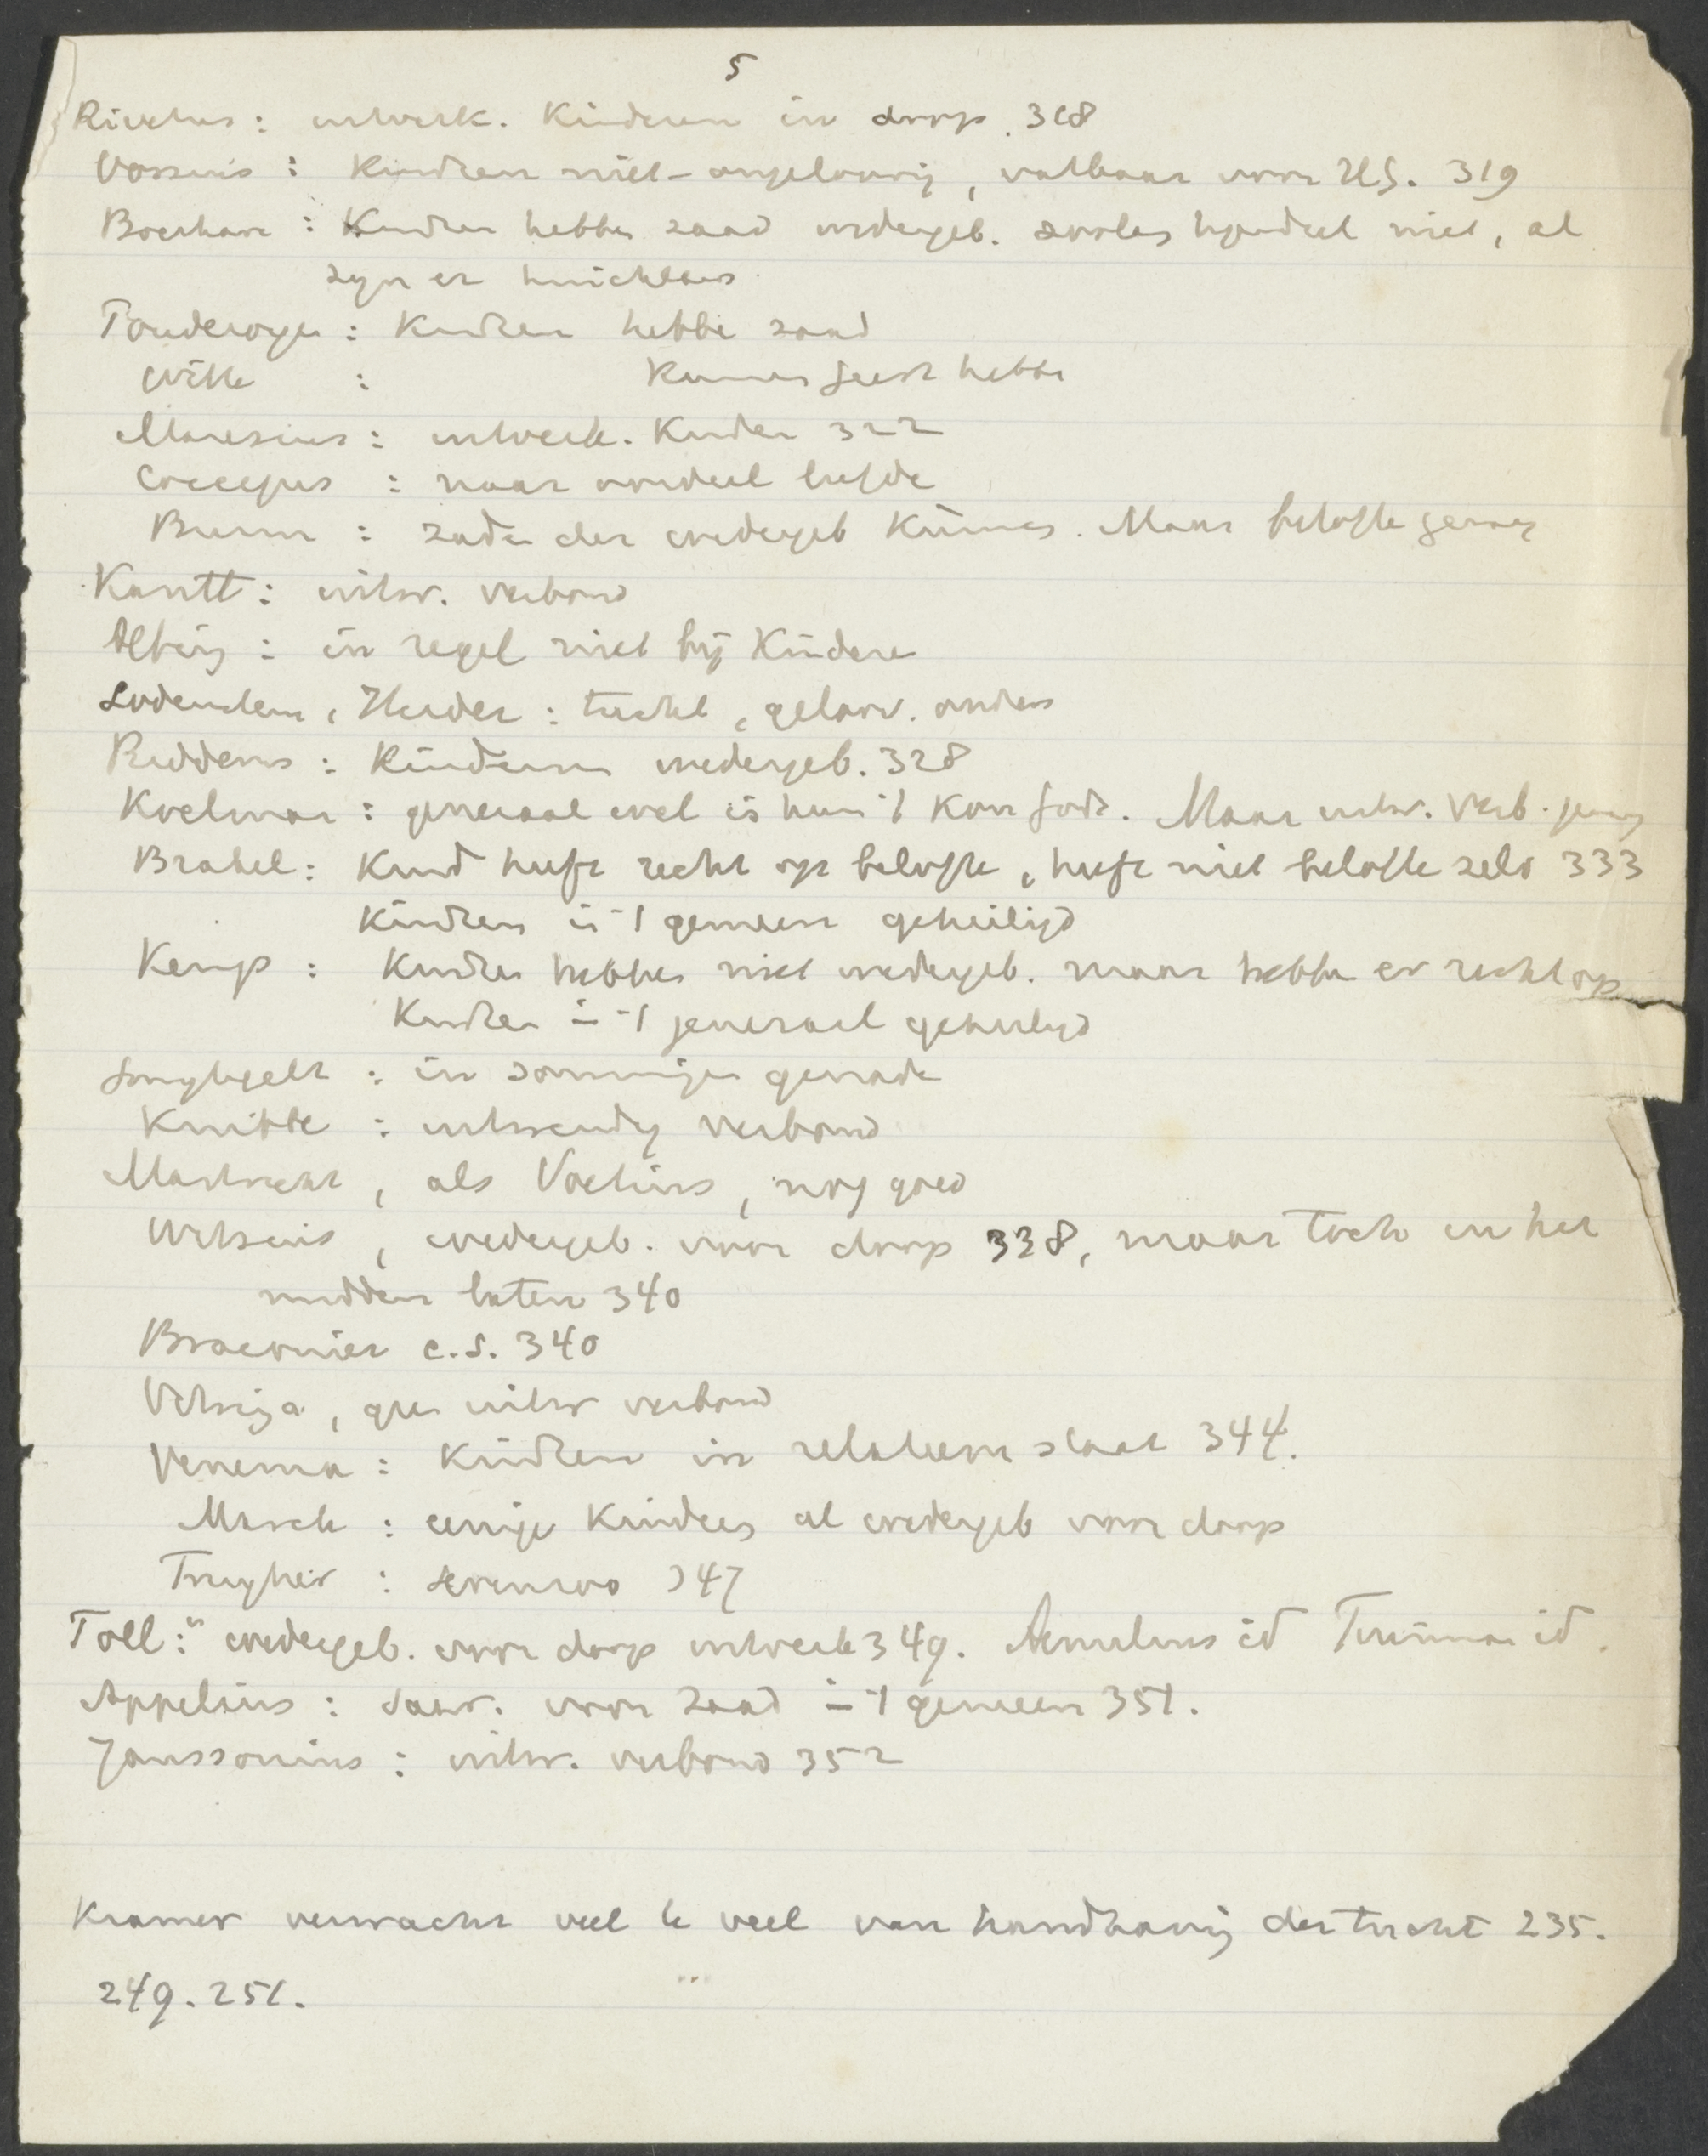 5
Rivetus: uitverk. Kinderen in doop. 318
Vossius: Kinderen niet-ongeloovig, vatbaar voor H.G. 319
: Kinderen hebben zaad wedergeb. doop hindert niet, al
zijn er huichelaars
: Kinderen hebbe zaad
Witte : Kunnen geest hebbe
Maresius: uitverk. Kinder 322
Coccejus: naar oordeel liefde
: zade der wedergeb Kunnen. Maar belofte genoeg
: uitw. verbond
Alting: in regel niet bij Kindere
Lodenstein, Herder: tucht, geloov. anders
Ridderus: Kinderen wedergeb. 328
Koelman: generaal wel is hun 't Kon. Gods. Maar uitw. Verb.
Brakel: Kind heeft recht op belofte, heeft niet belofte zelv 333
Kindren in 't gemeen geheiligd
Kemp: Kindren hebben niet wedergeb. maar hebbe er recht op
Kindren in 't generael geheiligd
Smytegelt: in sommige genade
Knibbe: uitwendig verbond
Mastricht, als Voetius, nog goed
Witsius, wedergeb. voor doop 338, maar toch in het
midden laten 340
Braconier c.s. 340
Vitringa, geen uitw verbond
Venema: Kindren in relatieven staat 344.
Marck: eenige Kinders al wedergeb voor doop
: 347
Toll: wedergeb. voor doop uitverk 349. Aemilius id Tuinman id.
Appelius: sacr. voor zaad in 't gemeen 351.
Janssonius: uitw. verbond 352
Kramer verwacht veel te veel van handhaving der tucht 235.
249. 251.